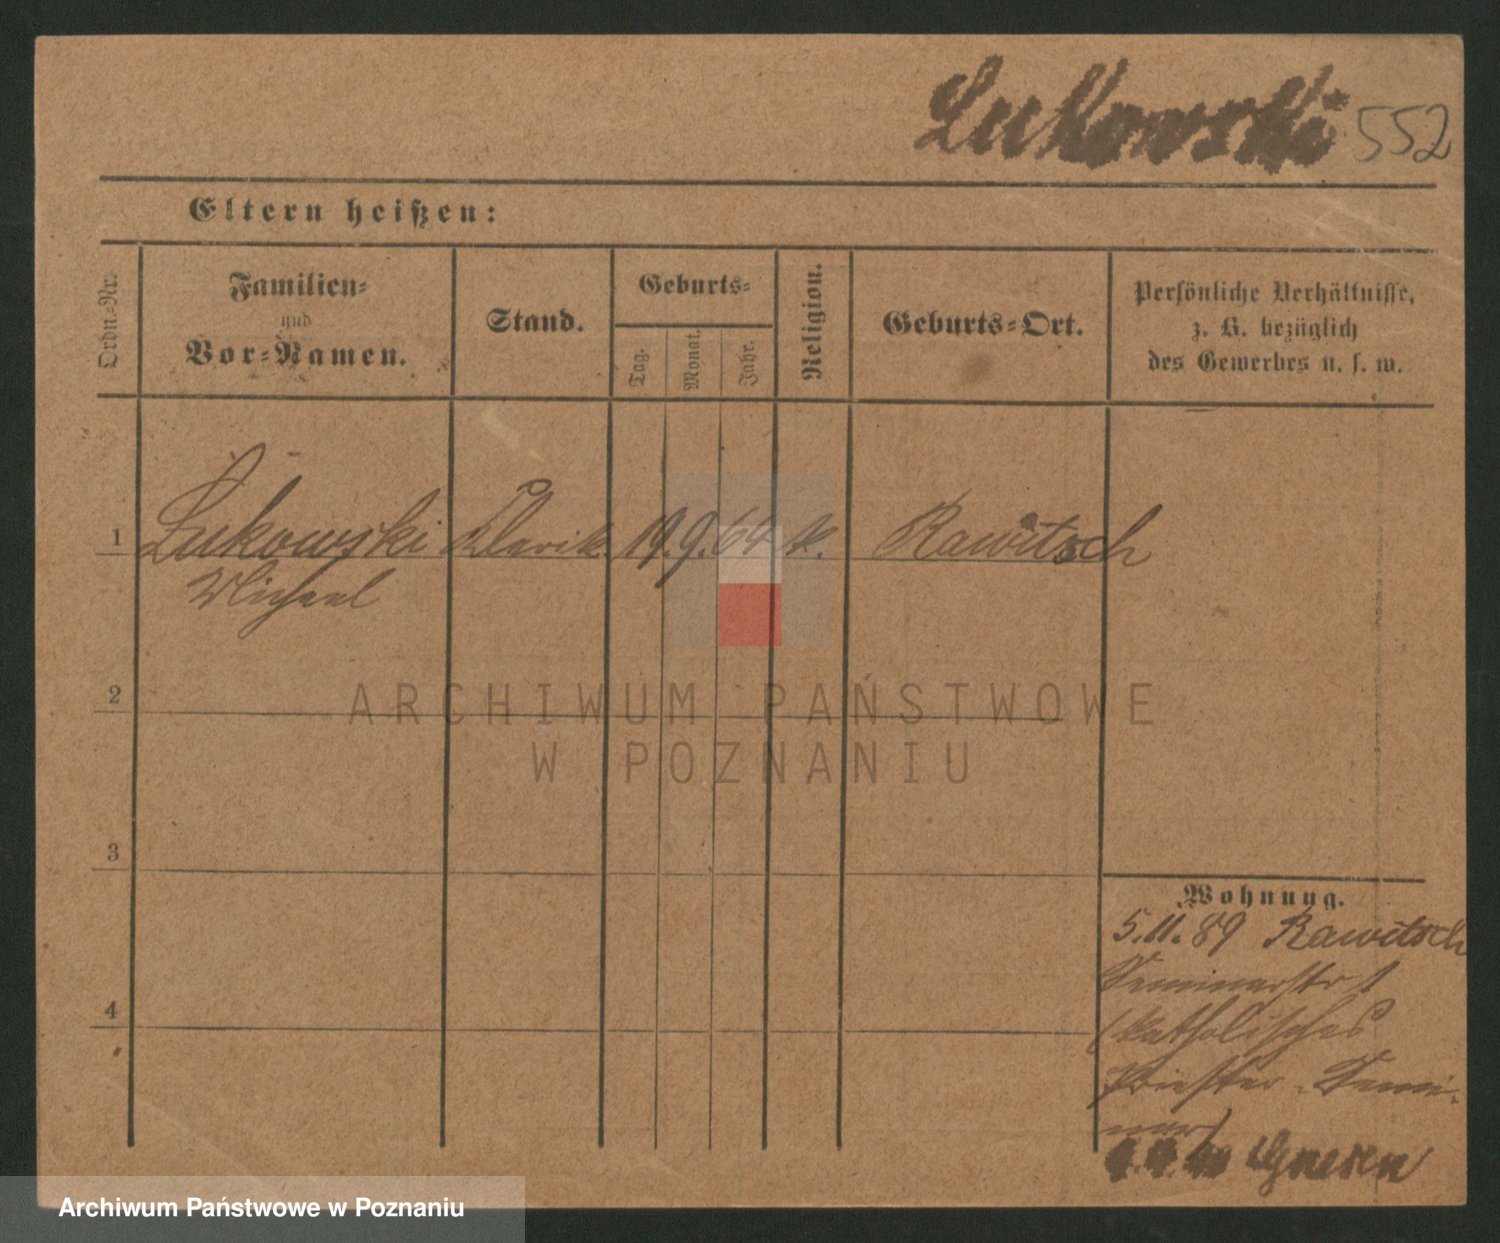 Lukowski 552
Eltern heißen:
Ordn.-Nr.
Familien-
und
Vor-Namen.
Stand.
Geburts-
Tag.
Monat.
Jahr.
Religion.
Geburts-Ort.
Persönliche Verhältnisse,
z. B. bezüglich
des Gewerbes u. s. w.
1 Lukowski Klerik. 19. 9. 64 k. Rawitsch
Michael
2
ARCHIWUM PAŃSTWOWE
W POZNANIU
3
Wohnung.
5.11.89 Rawitsch
Seminarstr 1
(Katholisches
Priester-Semi-
nar)
Gnesen
4
Archiwum Państwowe w Poznaniu